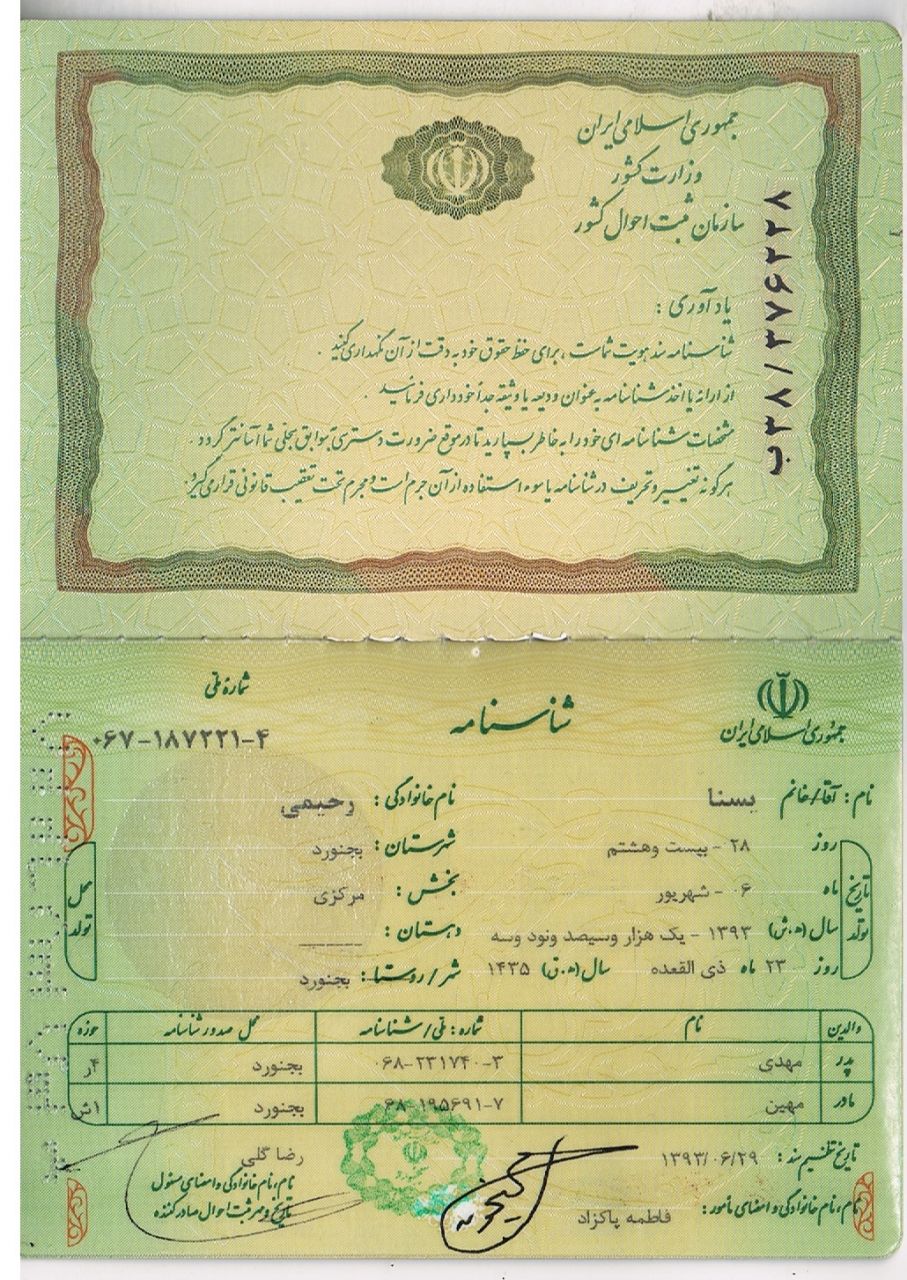 جمهوری اسلامی ایران
وزارت کشور
سازمان ثبت احوال کشور
ب۳۸/۳۷۶۲۲۸
یادآوری :
شناسنامه سند هویت شماست ، برای حفظ حقوق خود به دقت از آن نگهداری کنید .
از ارائه یا اخذ شناسنامه به عنوان ودیعه یا وثیقه جداً خودداری فرمائید .
مشخصات شناسنامه ای خود را به خاطر بسپارید تا در موقع ضرورت دسترسی به سوابق سجلی شما آسانتر گردد .
هرگونه تغییر و تحریف در شناسنامه یا سوء استفاده از آن جرم است و مجرم تحت تعقیب قانونی قرار می‌گیرد.
جمهوری اسلامی ایران
شناسنامه
شماره ملی
۰۶۷-۱۸۷۲۲۱-۴
نام : آقا/خانم یسنا نام خانوادگی : رحیمی
تاریخ تولد
روز ۲۸ - بیست وهشتم شهرستان : بجنورد
ماه ۰۶ - شهریور بخش : مرکزی
سال (ه.ش) ۱۳۹۳ - یک هزار وسیصد ونود وسه دهستان :
روز ۲۳ ماه ذی القعده سال (ه.ق) ۱۴۳۵ شهر/روستا : بجنورد
محل تولد
والدین نام شماره : ملی/شناسنامه محل صدور شناسنامه حوزه
پدر مهدی ۰۶۸-۲۳۱۷۴۰-۳ بجنورد ۴ر
مادر مهین ۰۶۸-۱۹۵۶۹۱-۷ بجنورد ۱ش
تاریخ تنظیم سند : ۱۳۹۳/۰۶/۲۹ رضا گلی
نام، نام خانوادگی و امضای مأمور : فاطمه پاکزاد
نام، نام خانوادگی و امضای مسئول
تاریخ و مهر ثبت احوال صادر کننده